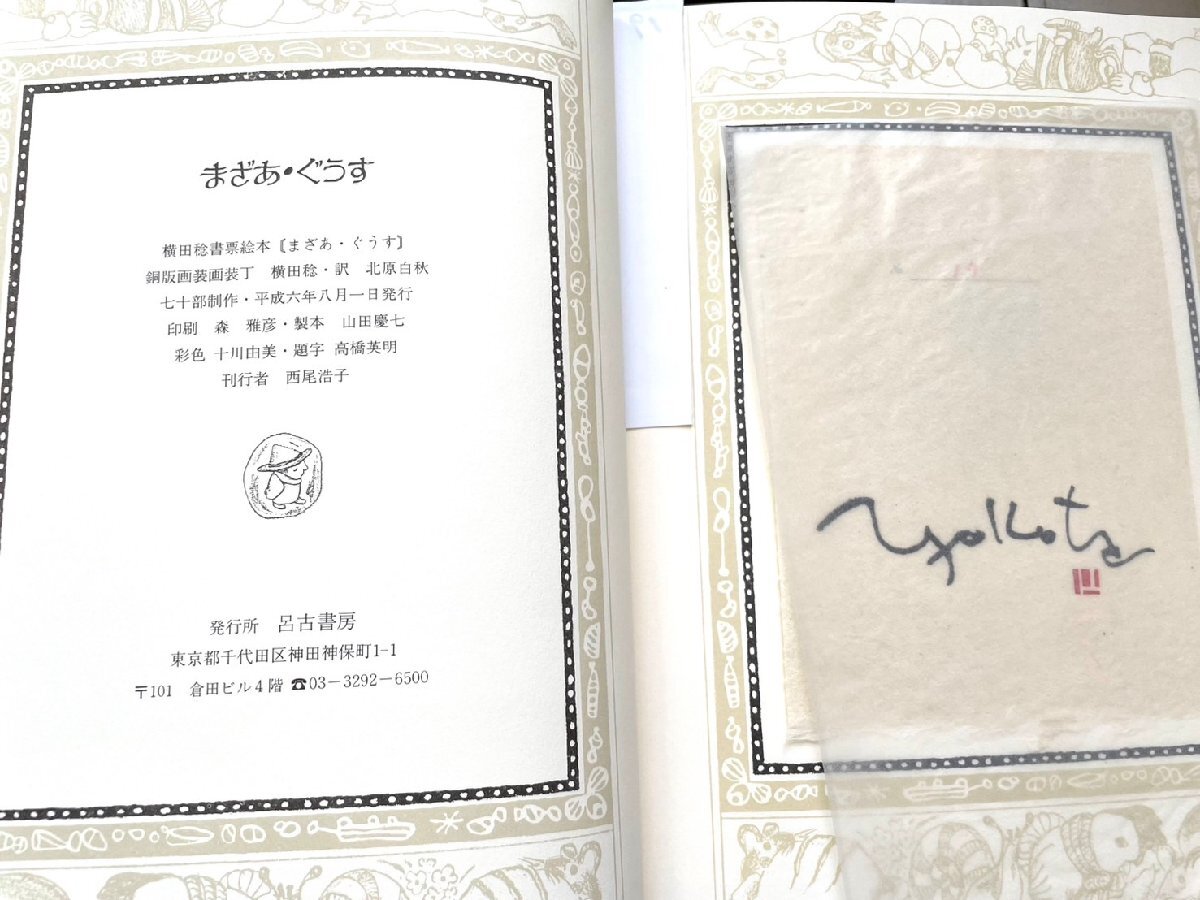 まざあ・ぐうす
横田稔書票絵本〔まざあ・ぐうす〕
銅版画装画装丁　横田稔・訳　北原白秋
七十部制作・平成六年八月一日発行
印刷　森　雅彦・製本　山田慶七
彩色　十川由美・題字　高橋英明
刊行者　西尾浩子
発行所　呂古書房
東京都千代田区神田神保町1-1
〒101　倉田ビル4階 ☎03-3292-6500
Yokota